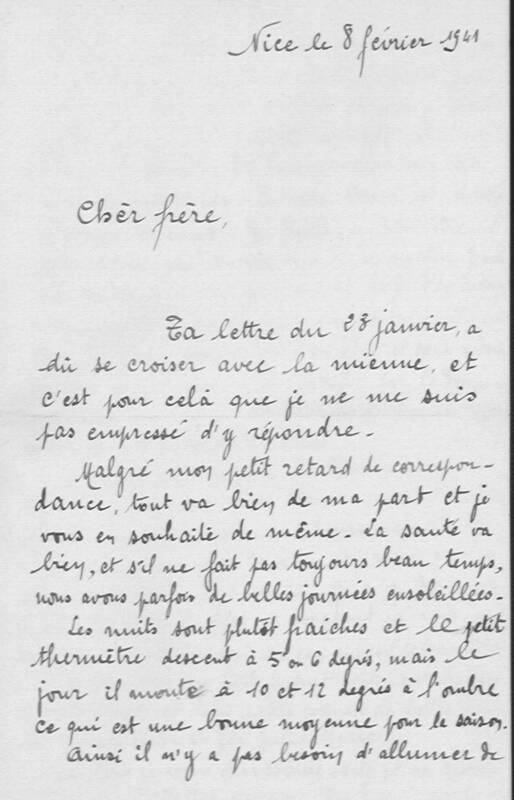 Nice le 8 février 1941
Chèr frère,
Ta lettre du 28 janvier, a
dû se croiser avec la miènne, et
c'est pour celà que je ne me suis
pas empressé d'y répondre.
Malgré mon petit retard de correspon-
dance, tout va bien de ma part et je
vous en souhaite de même. La santé va
bien, et s'il ne fait pas toujours beau temps,
nous avons parfois de belles journées ensoleillées.
Les nuits sont plutôt fraîches et le petit
thermètre descent à 5 ou 6 degrés, mais le
jour il monte à 10 et 12 degrés à l'ombre
ce qui est une bonne moyenne pour le saison.
Ainsi il n'y a pas besoin d'allumer de